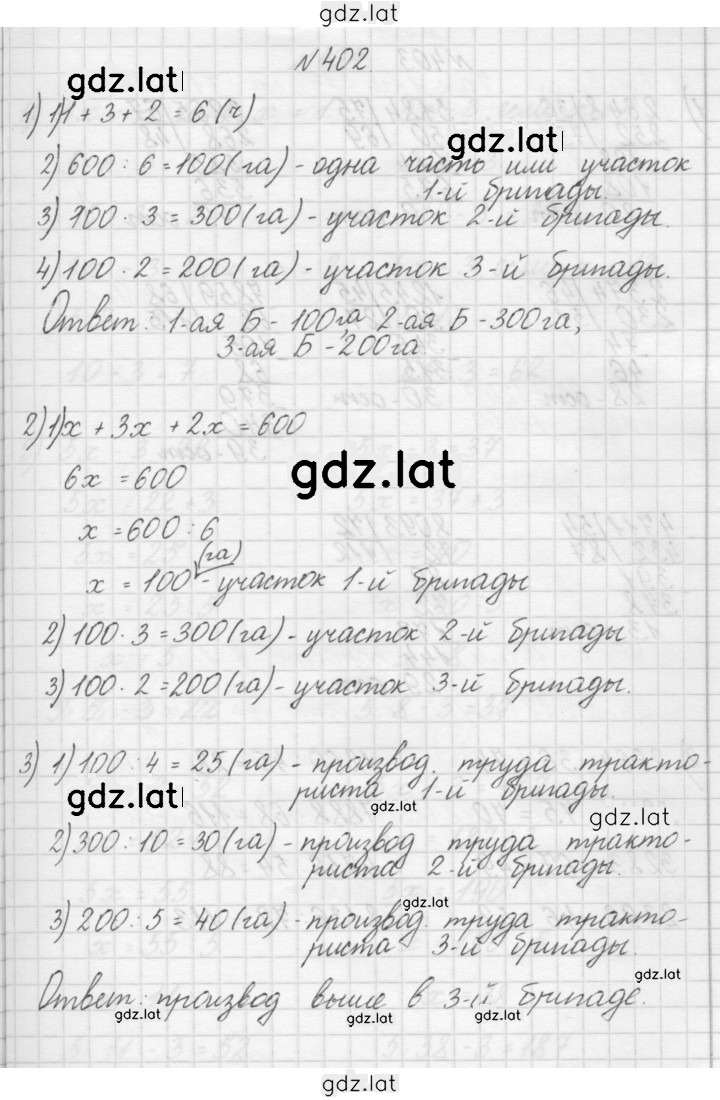 gdz.lat
N 402
gdz.lat
1) 1) 1 + 3 + 2 = 6 (ч)
gdz.lat
2) 600 : 6 = 100 (га) - одна часть или участок
1-й бригады.
3) 100 · 3 = 300 (га) - участок 2-й бригады.
4) 100 · 2 = 200 (га) - участок 3-й бригады.
Ответ: 1-ая Б - 100га, 2-ая Б - 300га,
3-ая Б - 200га.
2) 1) x + 3x + 2x = 600
gdz.lat
6x = 600
x = 600 : 6
x = 100 (га) - участок 1-й бригады
2) 100 · 3 = 300 (га) - участок 2-й бригады
3) 100 · 2 = 200 (га) - участок 3-й бригады.
3) 1) 100 : 4 = 25 (га) - производ. труда тракто-
риста 1-й бригады.
gdz.lat
gdz.lat
gdz.lat
2) 300 : 10 = 30 (га) - производ труда тракто-
риста 2-й бригады.
gdz.lat
3) 200 : 5 = 40 (га) - производ. труда тракто-
риста 3-й бригады.
gdz.lat
Ответ: производ выше в 3-й бригаде.
gdz.lat
gdz.lat
gdz.lat
gdz.lat